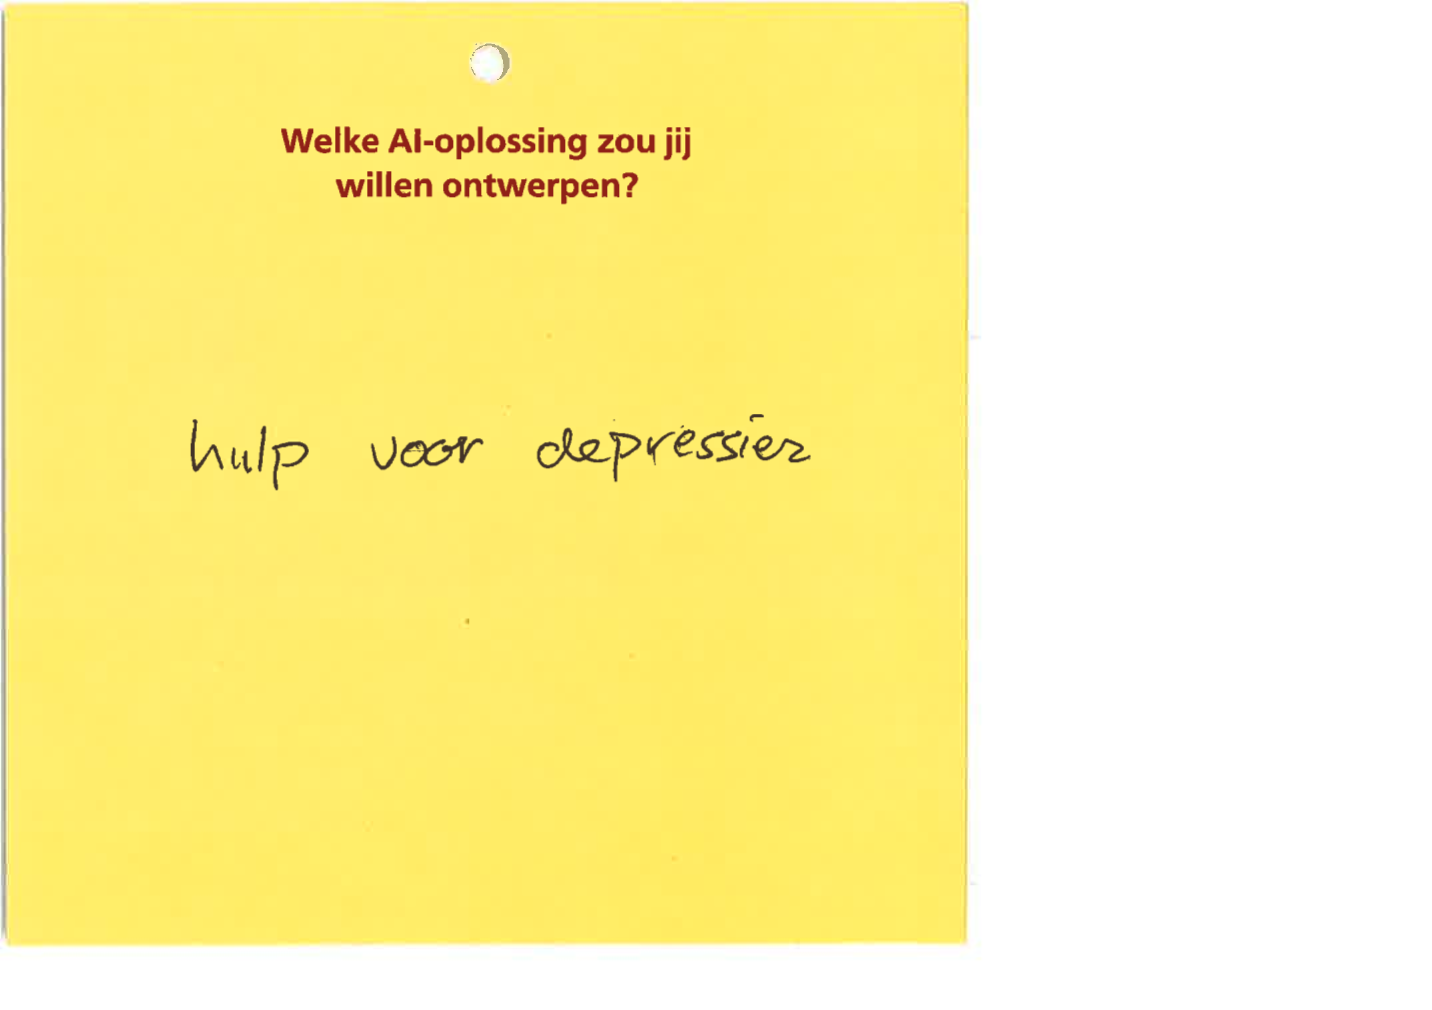 Welke AI-oplossing zou jij
willen ontwerpen?
hulp voor depressies